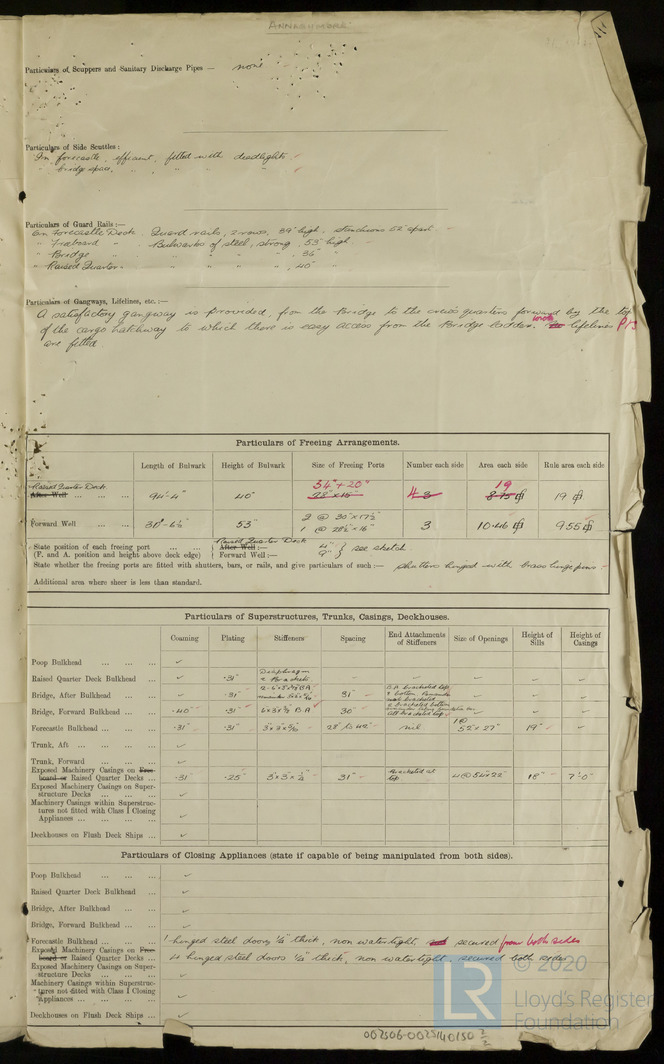 ANNAGHMORE
Particulars of Scuppers and Sanitary Discharge Pipes — none
Particulars of Side Scuttles :
In forecastle, efficient, fitted with deadlights
" bridge space, " " "
Particulars of Guard Rails :—
On Forecastle Deck. Guard rails, 2 rows, 39" high. Stanchions 52" apart
" Freeboard " Bulwarks of steel, strong, 53" high
" Bridge " " " " " 36" "
" Raised Quarter " " " " 40" "
Particulars of Gangways, Lifelines, etc. :—
A satisfactory gangway is provided, from the Bridge to the crew's quarters forward by the top
of the cargo hatchway to which there is easy access from the Bridge ladder. lifelines
are fitted
Particulars of Freeing Arrangements.
Length of Bulwark Height of Bulwark Size of Freeing Ports Number each side Area each side Rule area each side
Raised Quarter Deck 54" + 20" 19
After Well ... ... ... 94'-4" 40" 28" x 15" 4 3 8.75 19
Forward Well ... ... ... 30'-6½" 53" 2 @ 30" x 17½" 3 10.46 9.55
1 @ 28½" x 16"
State position of each freeing port ... ... Raised Quarter Deck
After Well :—
(F. and A. position and height above deck edge) Forward Well :— see sketch
State whether the freeing ports are fitted with shutters, bars, or rails, and give particulars of such :— shutters hinged with brass hinge pins
Additional area where sheer is less than standard.
Particulars of Superstructures, Trunks, Casings, Deckhouses.
Coaming Plating Stiffeners Spacing End Attachments of Stiffeners Size of Openings Height of Sills Height of Casings
Poop Bulkhead ... ... ...
Raised Quarter Deck Bulkhead ... .31" Diaphragm & Brackets
Bridge, After Bulkhead ... ... .31" 31"
Bridge, Forward Bulkhead ... ... .40" .31" B A 30"
Forecastle Bulkhead ... ... ... .31" .31" 28" to 42" nil 52" x 27" 19"
Trunk, Aft ... ... ...
Trunk, Forward ... ... ...
Exposed Machinery Casings on Free-
board or Raised Quarter Decks ... .31 .25" 31" Bracketed at top 4 @ 54" x 22" 18" 7'-0"
Exposed Machinery Casings on Super-
structure Decks ... ... ...
Machinery Casings within Superstruc-
tures not fitted with Class I Closing
Appliances ... ... ...
Deckhouses on Flush Deck Ships ...
Particulars of Closing Appliances (state if capable of being manipulated from both sides).
Poop Bulkhead ... ... ...
Raised Quarter Deck Bulkhead ...
Bridge, After Bulkhead ... ...
Bridge, Forward Bulkhead ... ...
Forecastle Bulkhead ... ... ... 1 hinged steel door ¼" thick, non watertight, secured from both sides
Exposed Machinery Casings on Free-
board or Raised Quarter Decks ... 4 hinged steel doors ¼" thick, non watertight, secured both sides
Exposed Machinery Casings on Super-
structure Decks ... ... ...
Machinery Casings within Superstruc-
tures not fitted with Class I Closing
Appliances ... ... ...
Deckhouses on Flush Deck Ships ...
LR © 2020
Lloyd's Register
Foundation
002506-002514-0150 2/2